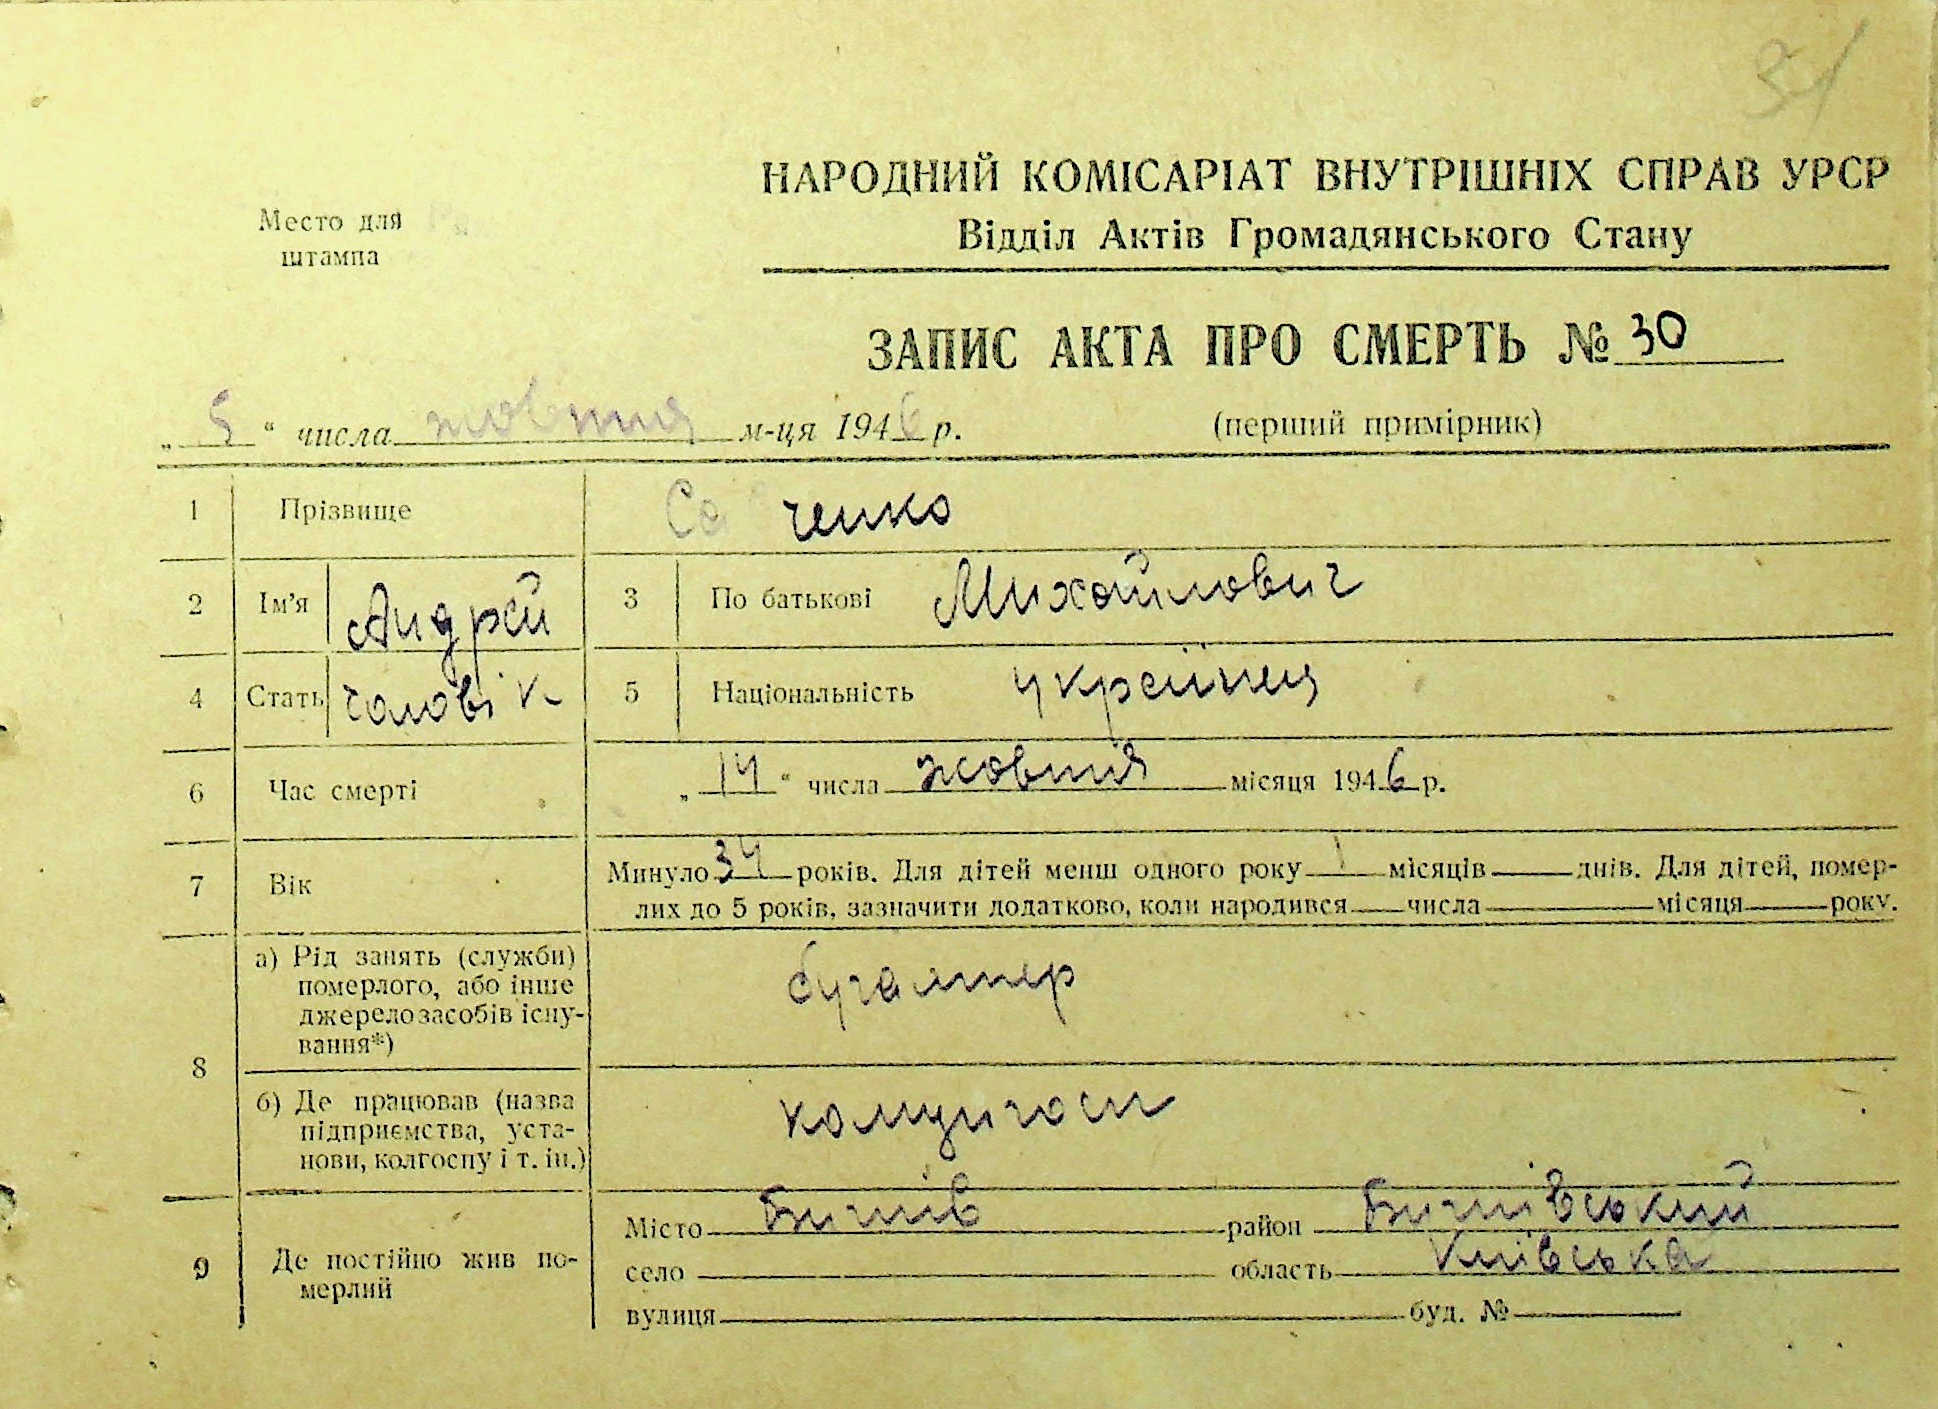 31
Место для
штампа
НАРОДНИЙ КОМІСАРІАТ ВНУТРІШНІХ СПРАВ УРСР
Відділ Актів Громадянського Стану
ЗАПИС АКТА ПРО СМЕРТЬ № 30
„ 5 “ числа жовтня м-ця 1946 р. (перший примірник)
1 Прізвище ченко
2 Ім'я Андрей 3 По батькові Михайлович
4 Стать чоловік 5 Національність українец
6 Час смерті „ 14 “ числа жовтня місяця 1946 р.
7 Вік Минуло 34 років. Для дітей менш одного року місяців днів. Для дітей, помер-
лих до 5 років, зазначити додатково, коли народився числа місяця року.
8 а) Рід занять (служби)
померлого, або інше
джерело засобів існу-
вання*)
бугалтер
б) Де працював (назва
підприємства, уста-
нови, колгоспу і т. ін.)
9 Де постійно жив по-
мерлий
Місто район
село область Київська
вулиця буд. №